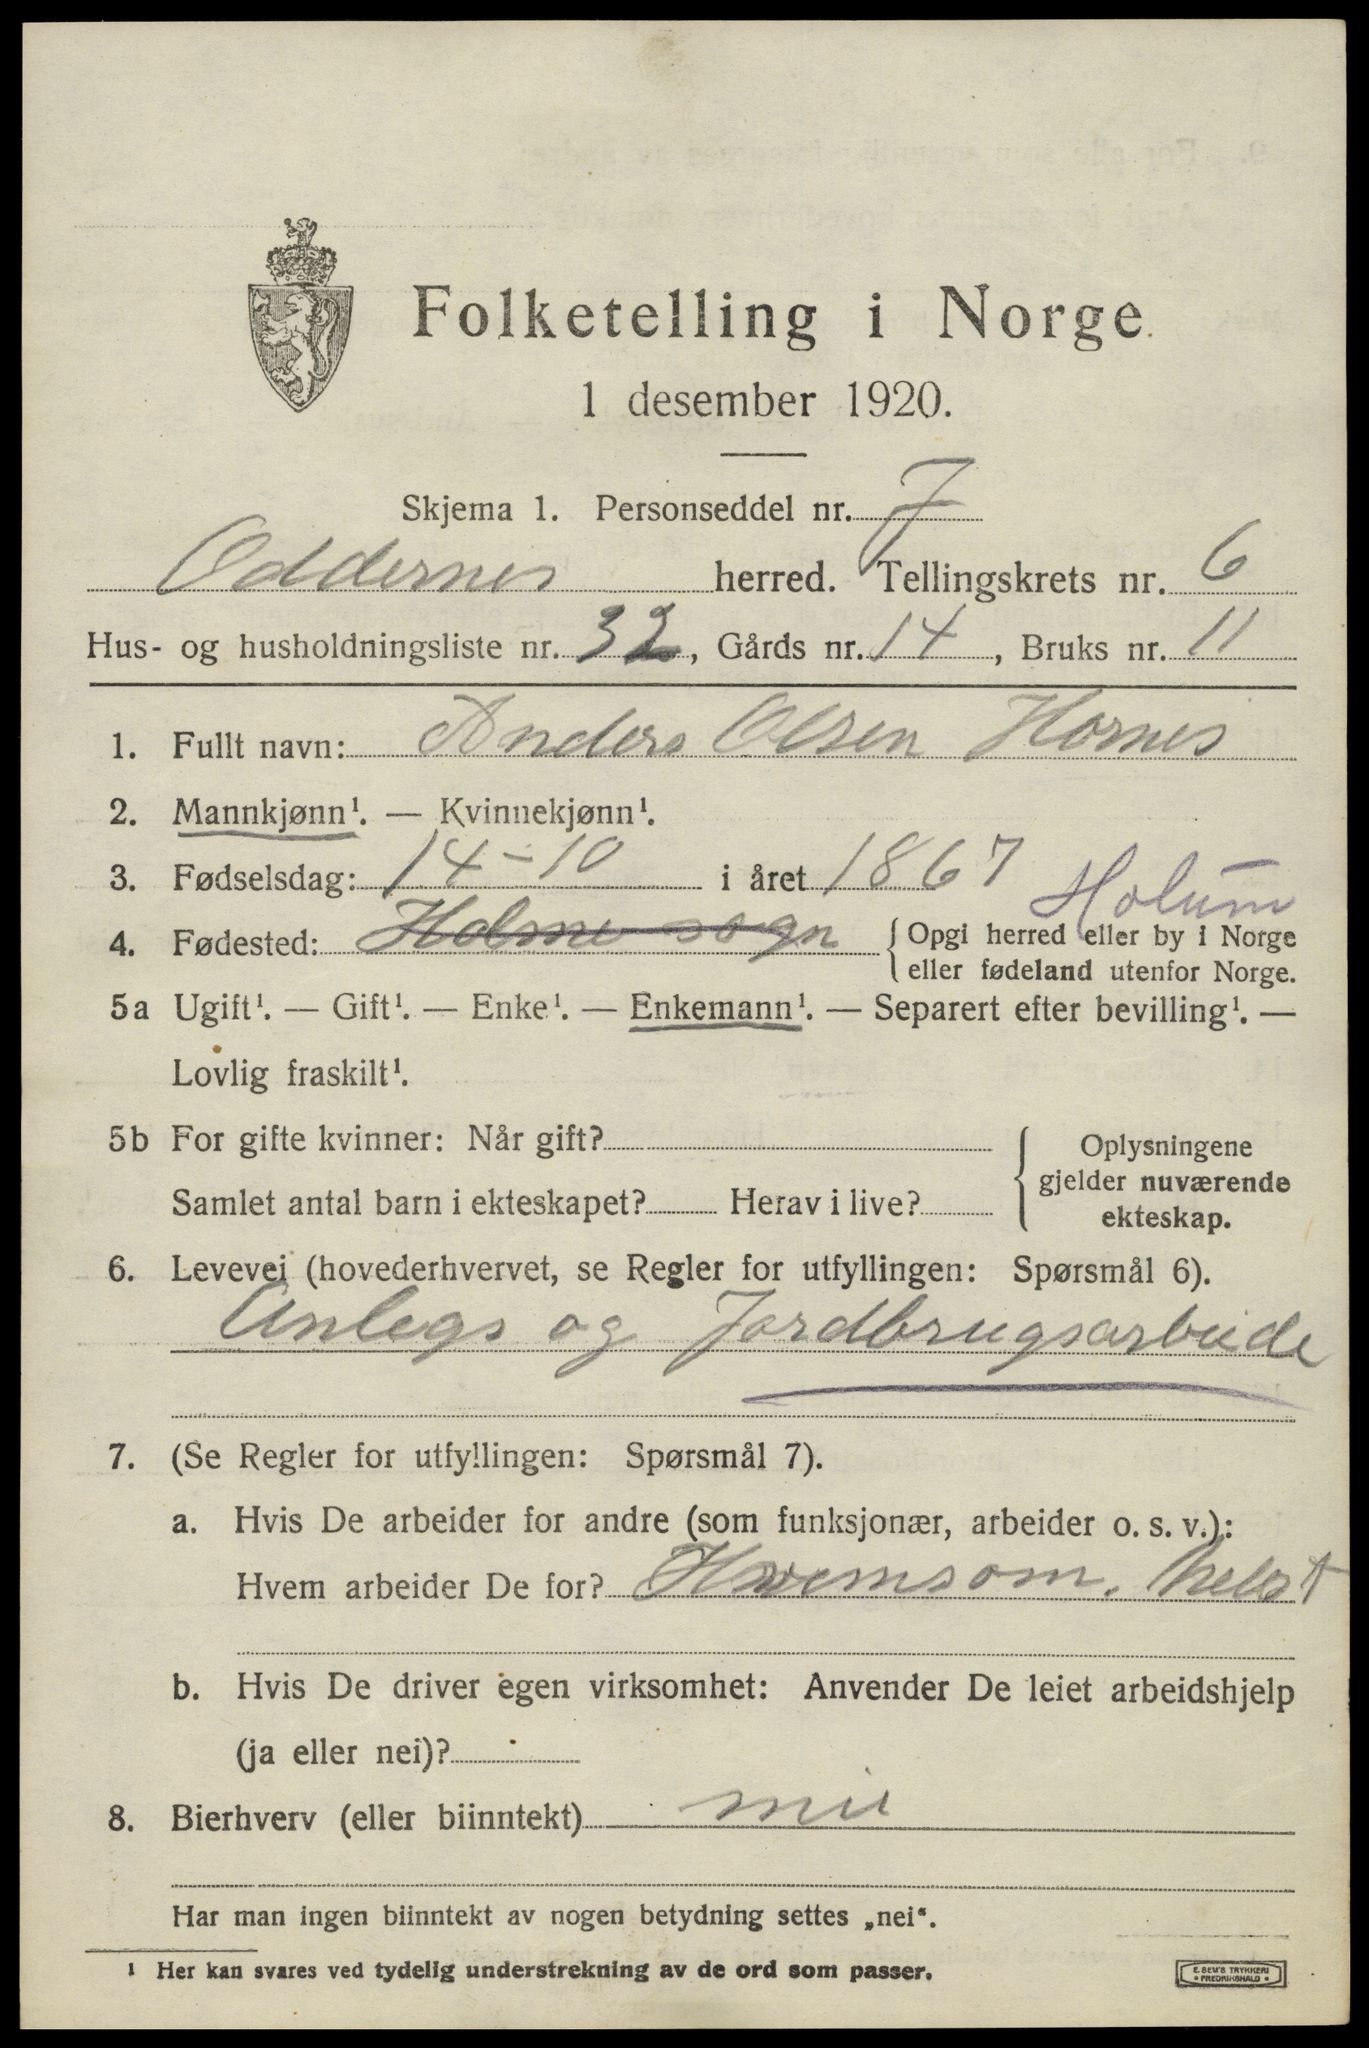 Folketelling i Norge
1 desember 1920.
Skjema 1. Personseddel nr. 7
Oddernes herred. Tellingskrets nr. 6
Hus- og husholdningsliste nr. 32, Gårds nr. 14, Bruks nr. 11
1. Fullt navn: Anders Olsen Hornes
2. Mannkjønn¹. — Kvinnekjønn¹.
3. Fødselsdag: 14-10 i året 1867
Holum
4. Fødested: Holme sogn { Opgi herred eller by i Norge
eller fødeland utenfor Norge.
5a Ugift¹. — Gift¹. — Enke¹. — Enkemann¹. — Separert efter bevilling¹. —
Lovlig fraskilt¹.
5b For gifte kvinner: Når gift?
Samlet antal barn i ekteskapet? Herav i live?
{ Oplysningene
gjelder nuværende
ekteskap.
6. Levevei (hovederhvervet, se Regler for utfyllingen: Spørsmål 6).
Anlegs og Jordbrugsarbeide
7. (Se Regler for utfyllingen: Spørsmål 7).
a. Hvis De arbeider for andre (som funksjonær, arbeider o. s. v.):
Hvem arbeider De for? Hvemsom. helst
b. Hvis De driver egen virksomhet: Anvender De leiet arbeidshjelp
(ja eller nei)?
8. Bierhverv (eller biinntekt)
Har man ingen biinntekt av nogen betydning settes „nei“.
¹ Her kan svares ved tydelig understrekning av de ord som passer.
E. SEM'S TRYKKERI
FREDRIKSHALD